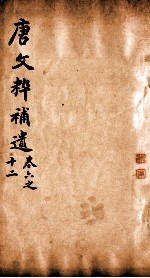 唐文粹補遺
卷六之
十二